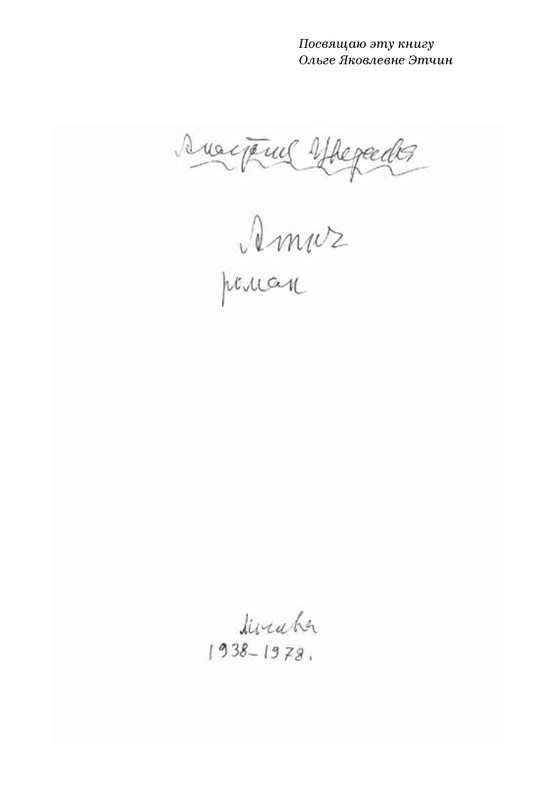 Посвящаю эту книгу
Ольге Яковлевне Этчин
Анастасия Цветаева
Amor
роман
Москва
1938–1978.